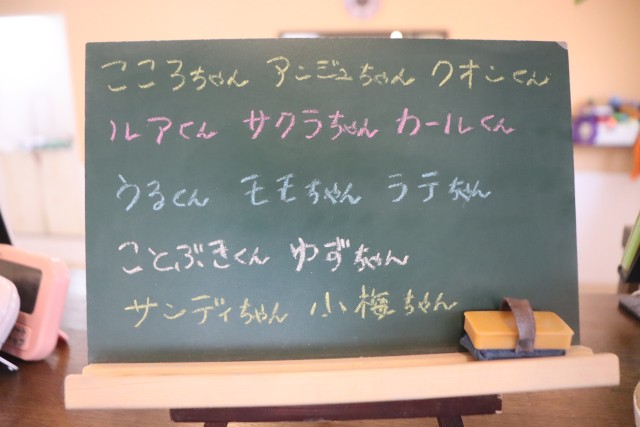 こころちゃん アンジュちゃん クオンくん
ルアくん サクラちゃん カールくん
うるくん モモちゃん ラテちゃん
ことぶきくん ゆずちゃん
サンディちゃん 小梅ちゃん